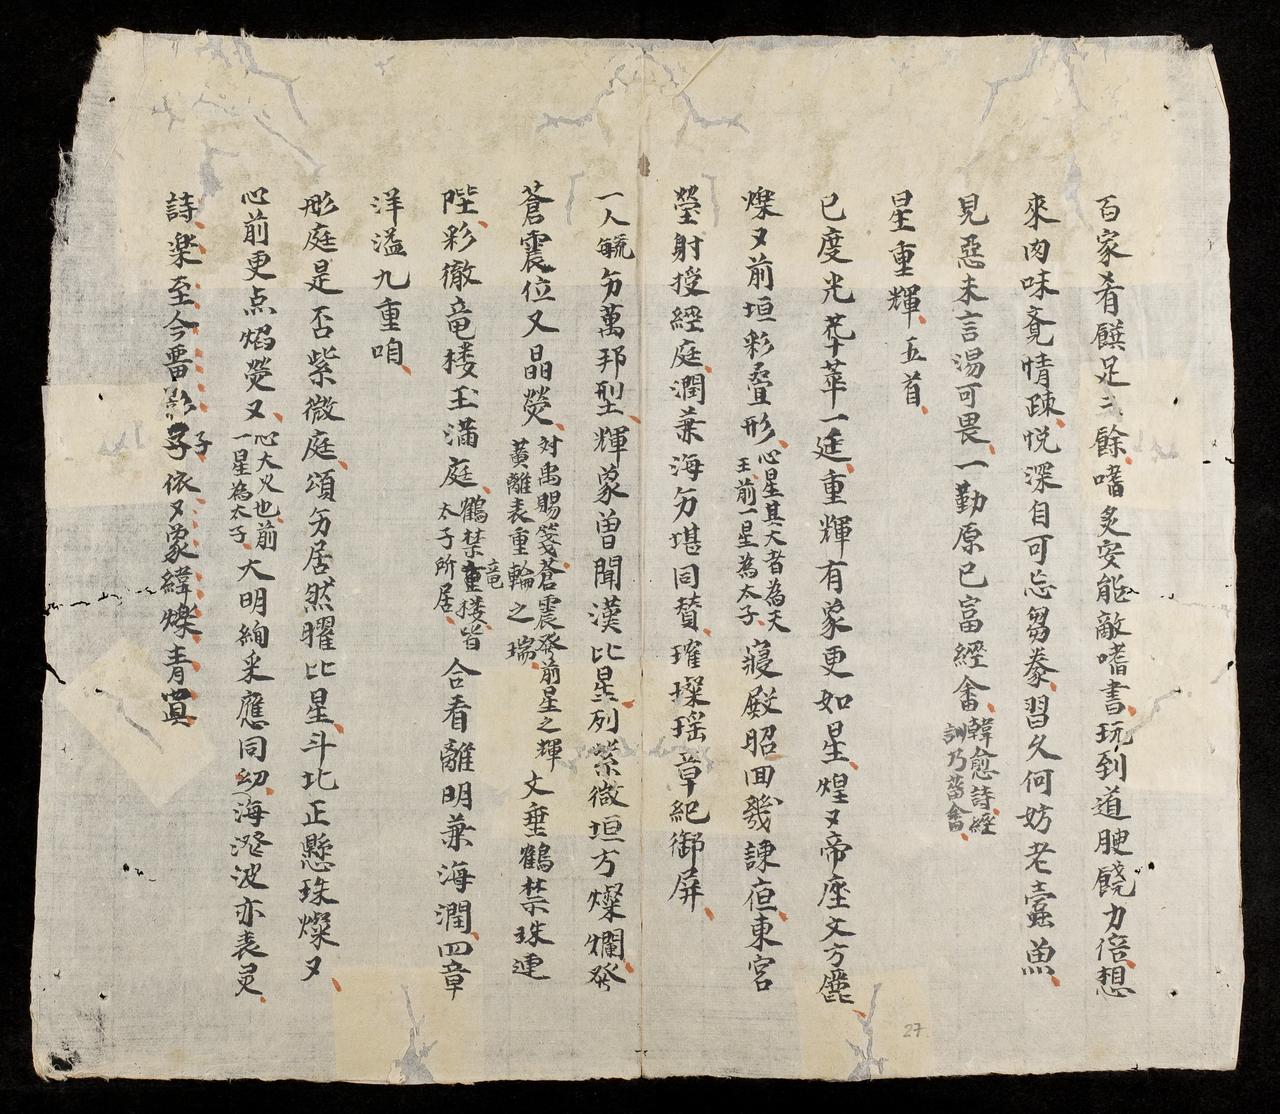 百家肴饌足三餘、嗜炙安能敵嗜書、玩到道腴饒力倍、想
來肉味覺情踈、悅深自可忘芻豢、習久何妨老蠹魚、
見惡未言湯可畏、一勤原已富經畬、韓愈詩經訓乃菑畬、
星重輝、五首、
已度光花十莘一廷、重輝有象更如星、煌〻帝座文方麗、
燦〻前垣彩疊形、心星其大者為天王、前一星為太子、寢殿昭回幾諫疸東宮
瑩射授經庭、潤兼海兮堪同贊、璀璨瑶章紀御屏、
一人毓兮萬邦型、輝象曾聞漢比星、列紫微垣方燦爛、發
蒼震位又晶熒、対禹賜箋、蒼震發前星之輝黃離表重輪之瑞、文垂鶴禁珠連
陛、彩徹竜楼玉滿庭、鶴禁竜楼皆太子所居、合看離明兼海潤、四章
洋溢九重咱、
彤庭是否紫微庭、頌兮居然曜比星、斗北正懸珠燦〻、
心前更点焰熒〻、心大火也、前一星為太子、大明絢采應同幼、海澄波亦表灵、
詩、楽至今畨影子依〻、象緯燦青冥